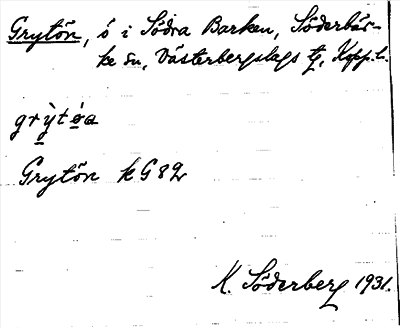 Grytön, ö i Södra Barken, Söderbär-
ke sn, Västerbergslags tg, Kopp. l.
grỳtø̀a
Grytön kG82
K. Söderberg 1931.